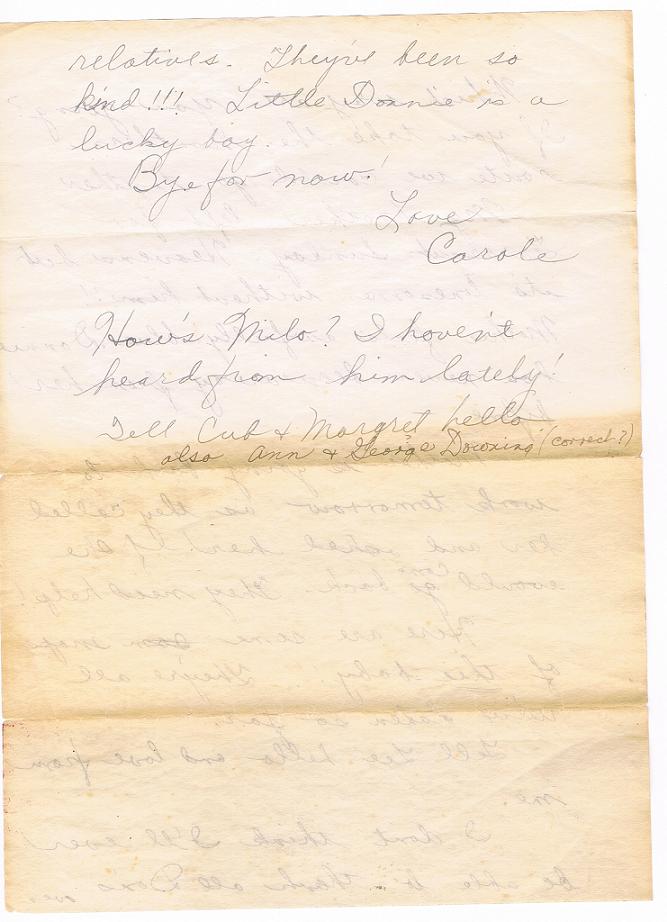 relatives. They've been so
kind!!! Little Donnie is a
lucky boy.
Bye for now!
Love
Carole
How's Milo? I haven't
heard from him lately!
Tell Cub & Margret hello
also Ann & George Downing (correct?)